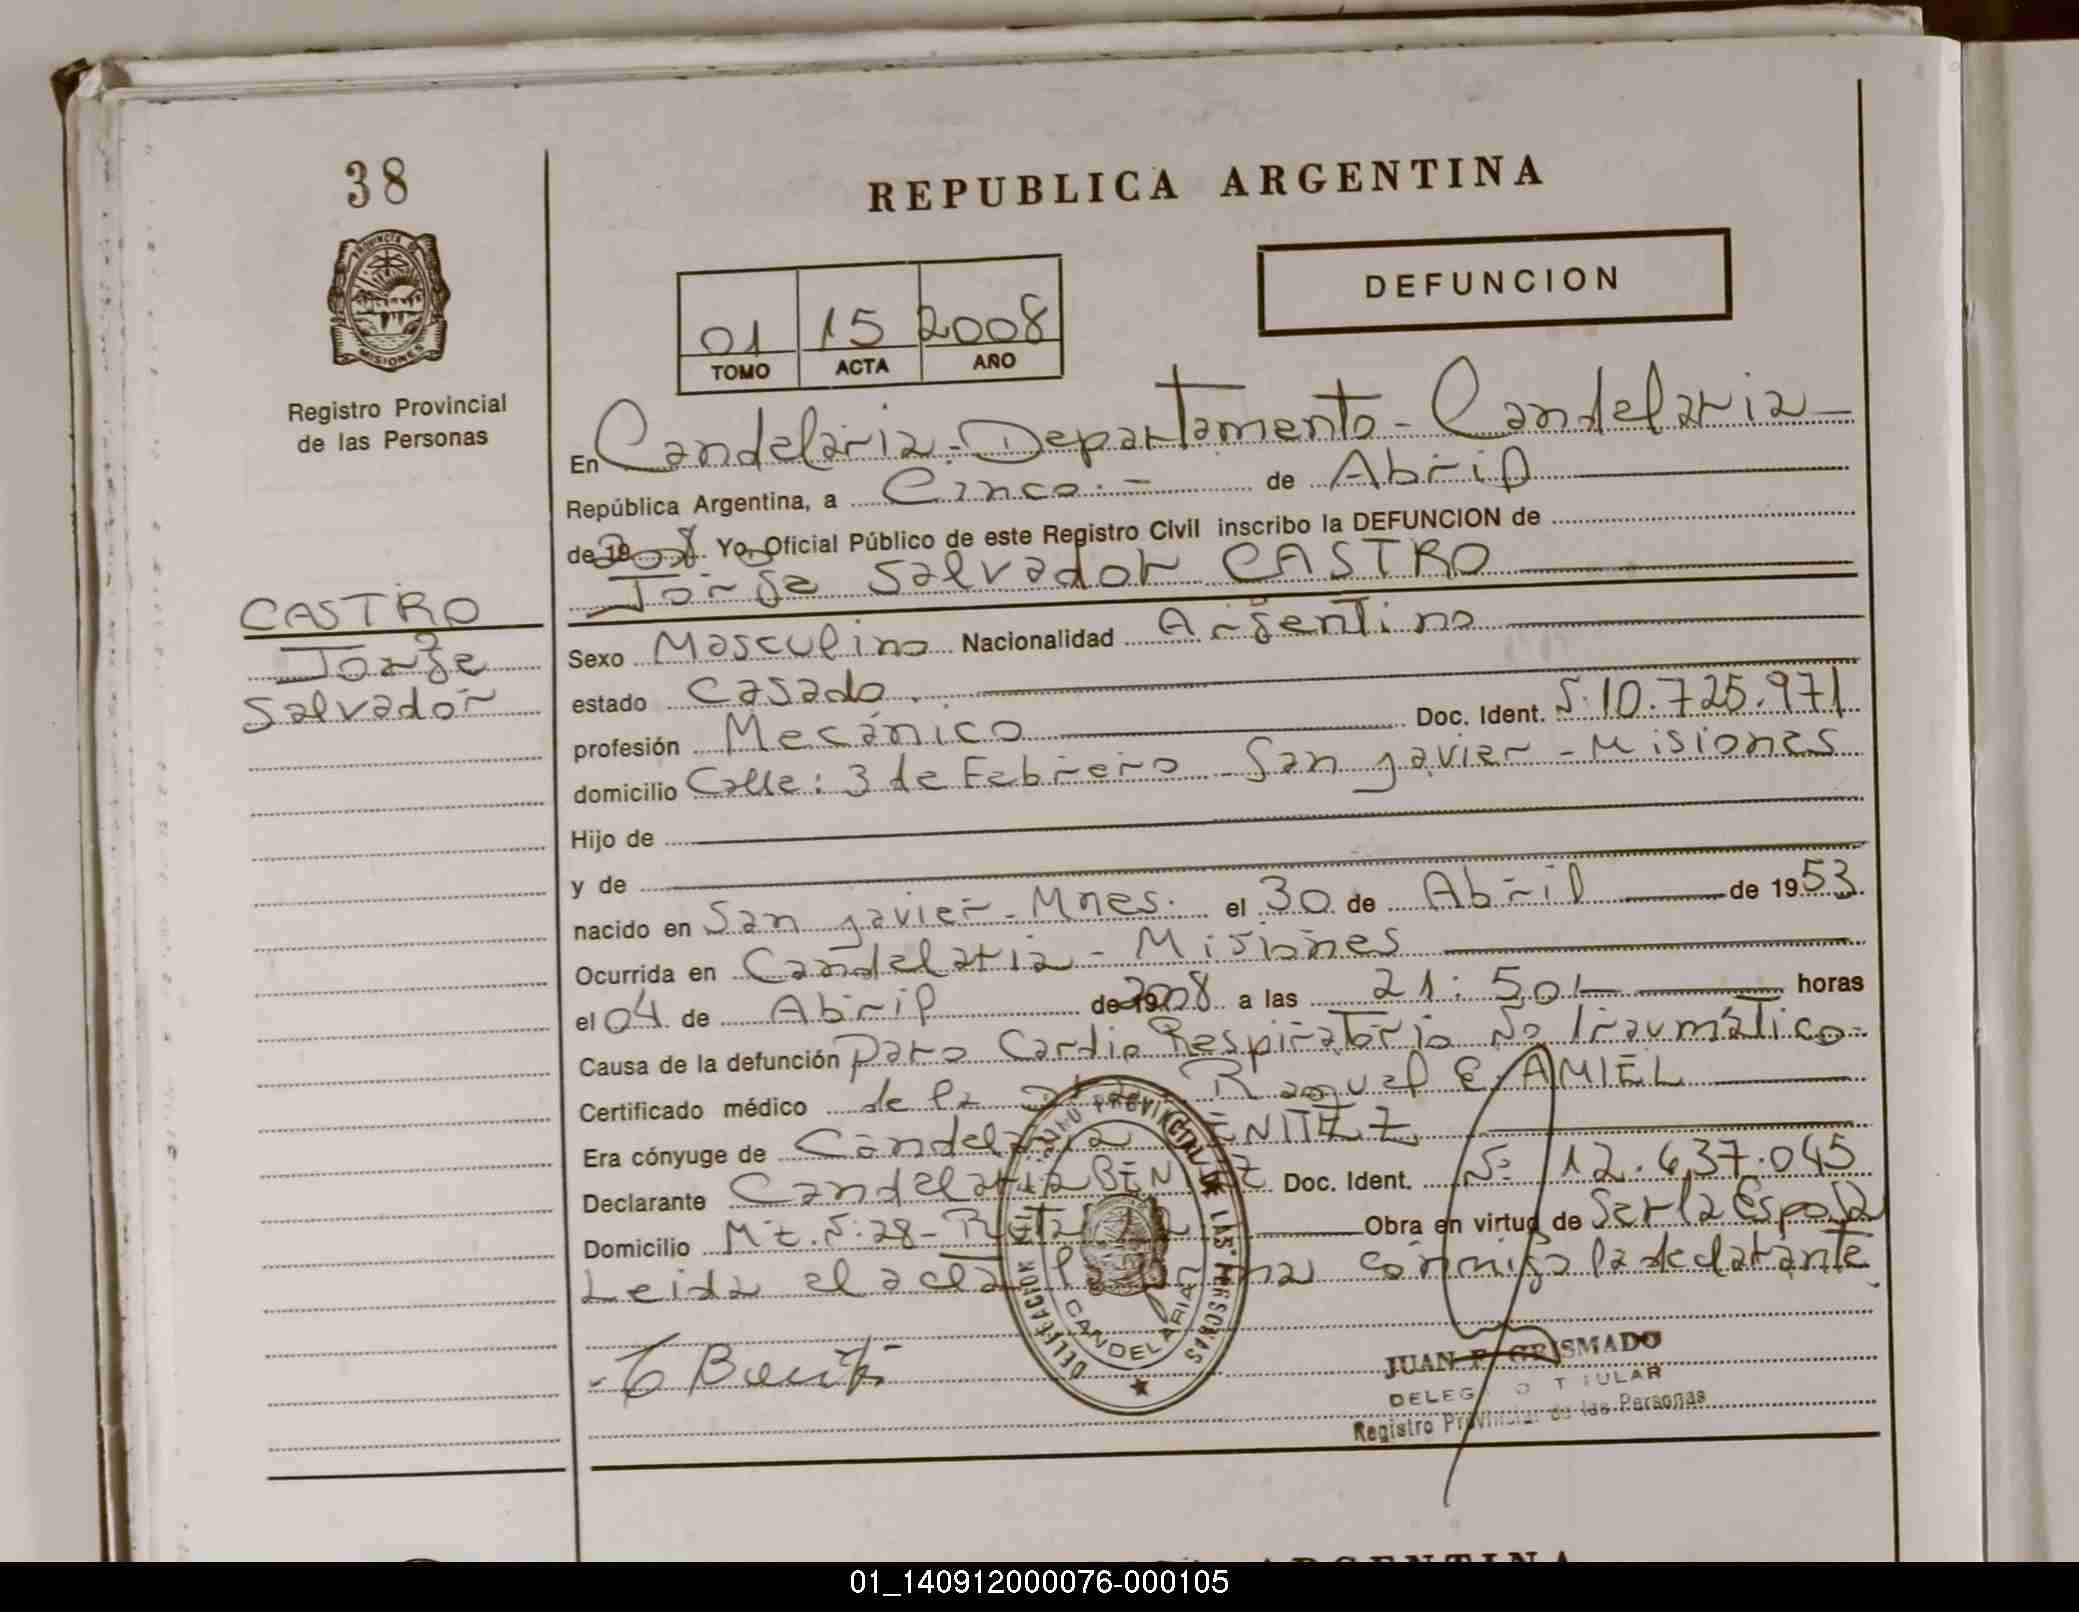 38
REPUBLICA ARGENTINA
PROVINCIA DE
MISIONES
Registro Provincial
de las Personas
DEFUNCION
01 15 2008
TOMO ACTA AÑO
En Candelaria - Departamento - Candelaria
República Argentina, a Cinco.- de Abril
de 2008 Yo, Oficial Público de este Registro Civil inscribo la DEFUNCION de
Jorge Salvador CASTRO
CASTRO
Jorge
Salvador
Sexo Masculino Nacionalidad Argentino
estado Casado.
profesión Mecánico Doc. Ident. N: 10.725.971
domicilio Calle: 3 de Febrero - San Javier - Misiones
Hijo de
y de
nacido en San Javier - Mnes. el 30 de Abril de 1953
Ocurrida en Candelaria - Misiones
el 04 de Abril de 2008 a las 21:50 horas
Causa de la defunción Paro Cardio Respiratorio No Traumático
Certificado médico de la Raquel E. AMIEL
Era cónyuge de Candelaria BENITEZ
Declarante Candelaria BENITEZ Doc. Ident. Nº 12.637.045
Domicilio Mz. N: 28 - Obra en virtud de Ser la Esposa
Leida el acta la firma conmigo la declarante
REGISTRO PROVINCIAL DE LAS PERSONAS
DELEGACION
CANDELARIA
JUAN GRISMADO
DELEGADO TITULAR
Registro Provincial de las Personas
ARGENTINA
01_140912000076-000105